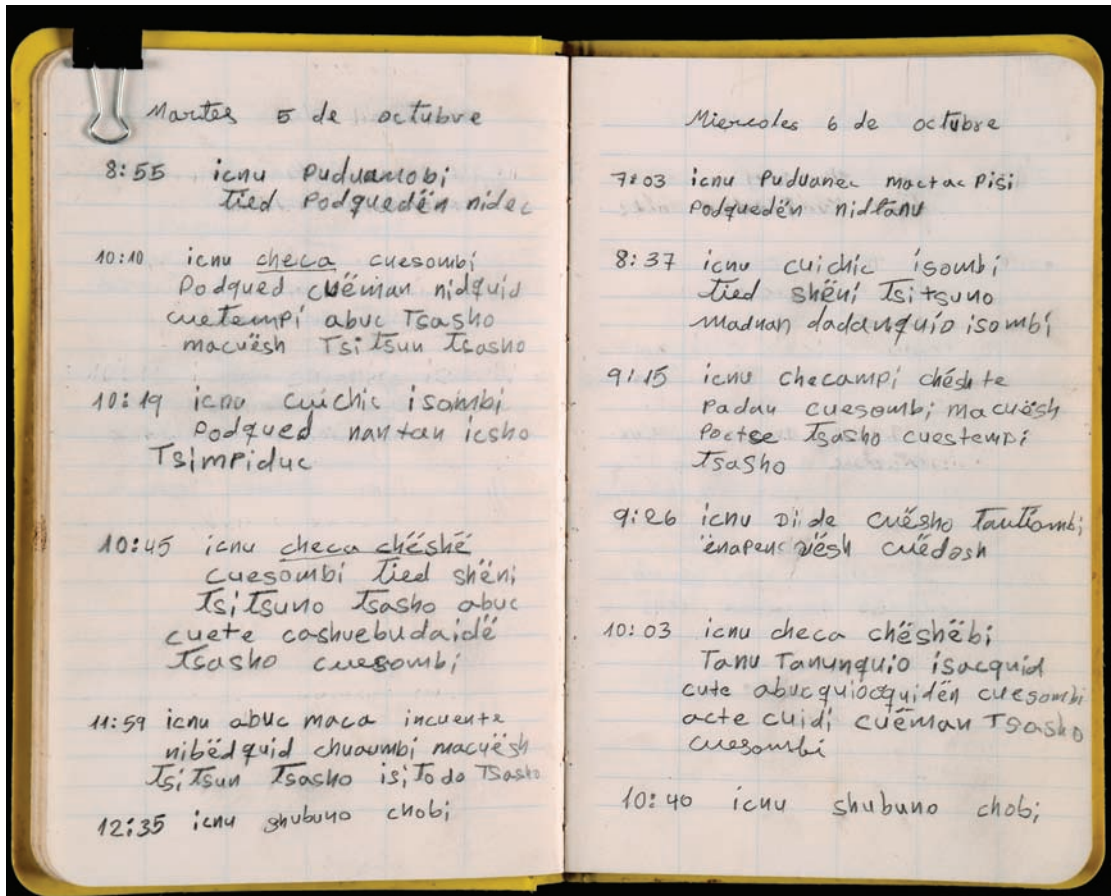 Martes 5 de octubre
8:55 icnu Puduanobi
tied Podquedën nidec
10:10 icnu checa cuesombi
Podqued cuëman nidquid
cuetempi abuc Tsasho
macuësh Tsitsun Tsasho
10:19 icnu cuichic isombi
Podqued nantan icsho
Tsimpiduc
10:45 icnu checa chëshë
cuesombi tied shëni
Tsitsuno Tsasho abuc
cuete cashuebudaidë
Tsasho cuesombi
11:59 icnu abuc maca incuente
nibëdquid chuaumbi macuësh
Tsitsun Tsasho isi Todo Tsasho
12:35 icnu shubuno chobi
Miercoles 6 de octubre
7:03 icnu Puduanec mactac Pisi
Podquedën nidtanu
8:37 icnu cuichic isombi
tied shëni Tsitsuno
maduan dadanquio isombi
9:15 icnu checampi chështe
Padau cuesombi macuësh
Poctse Tsasho cuestempi
Tsasho
9:26 icnu Di de cuësho Tautiambi
ënapen vësh cuëdash
10:03 icnu checa chëshëbi
Tanu Tanunquio isacquid
cute abucquiocquidën cuesombi
acte cuidi cuëman Tsasho
cuesombi
10:40 icnu shubuno chobi